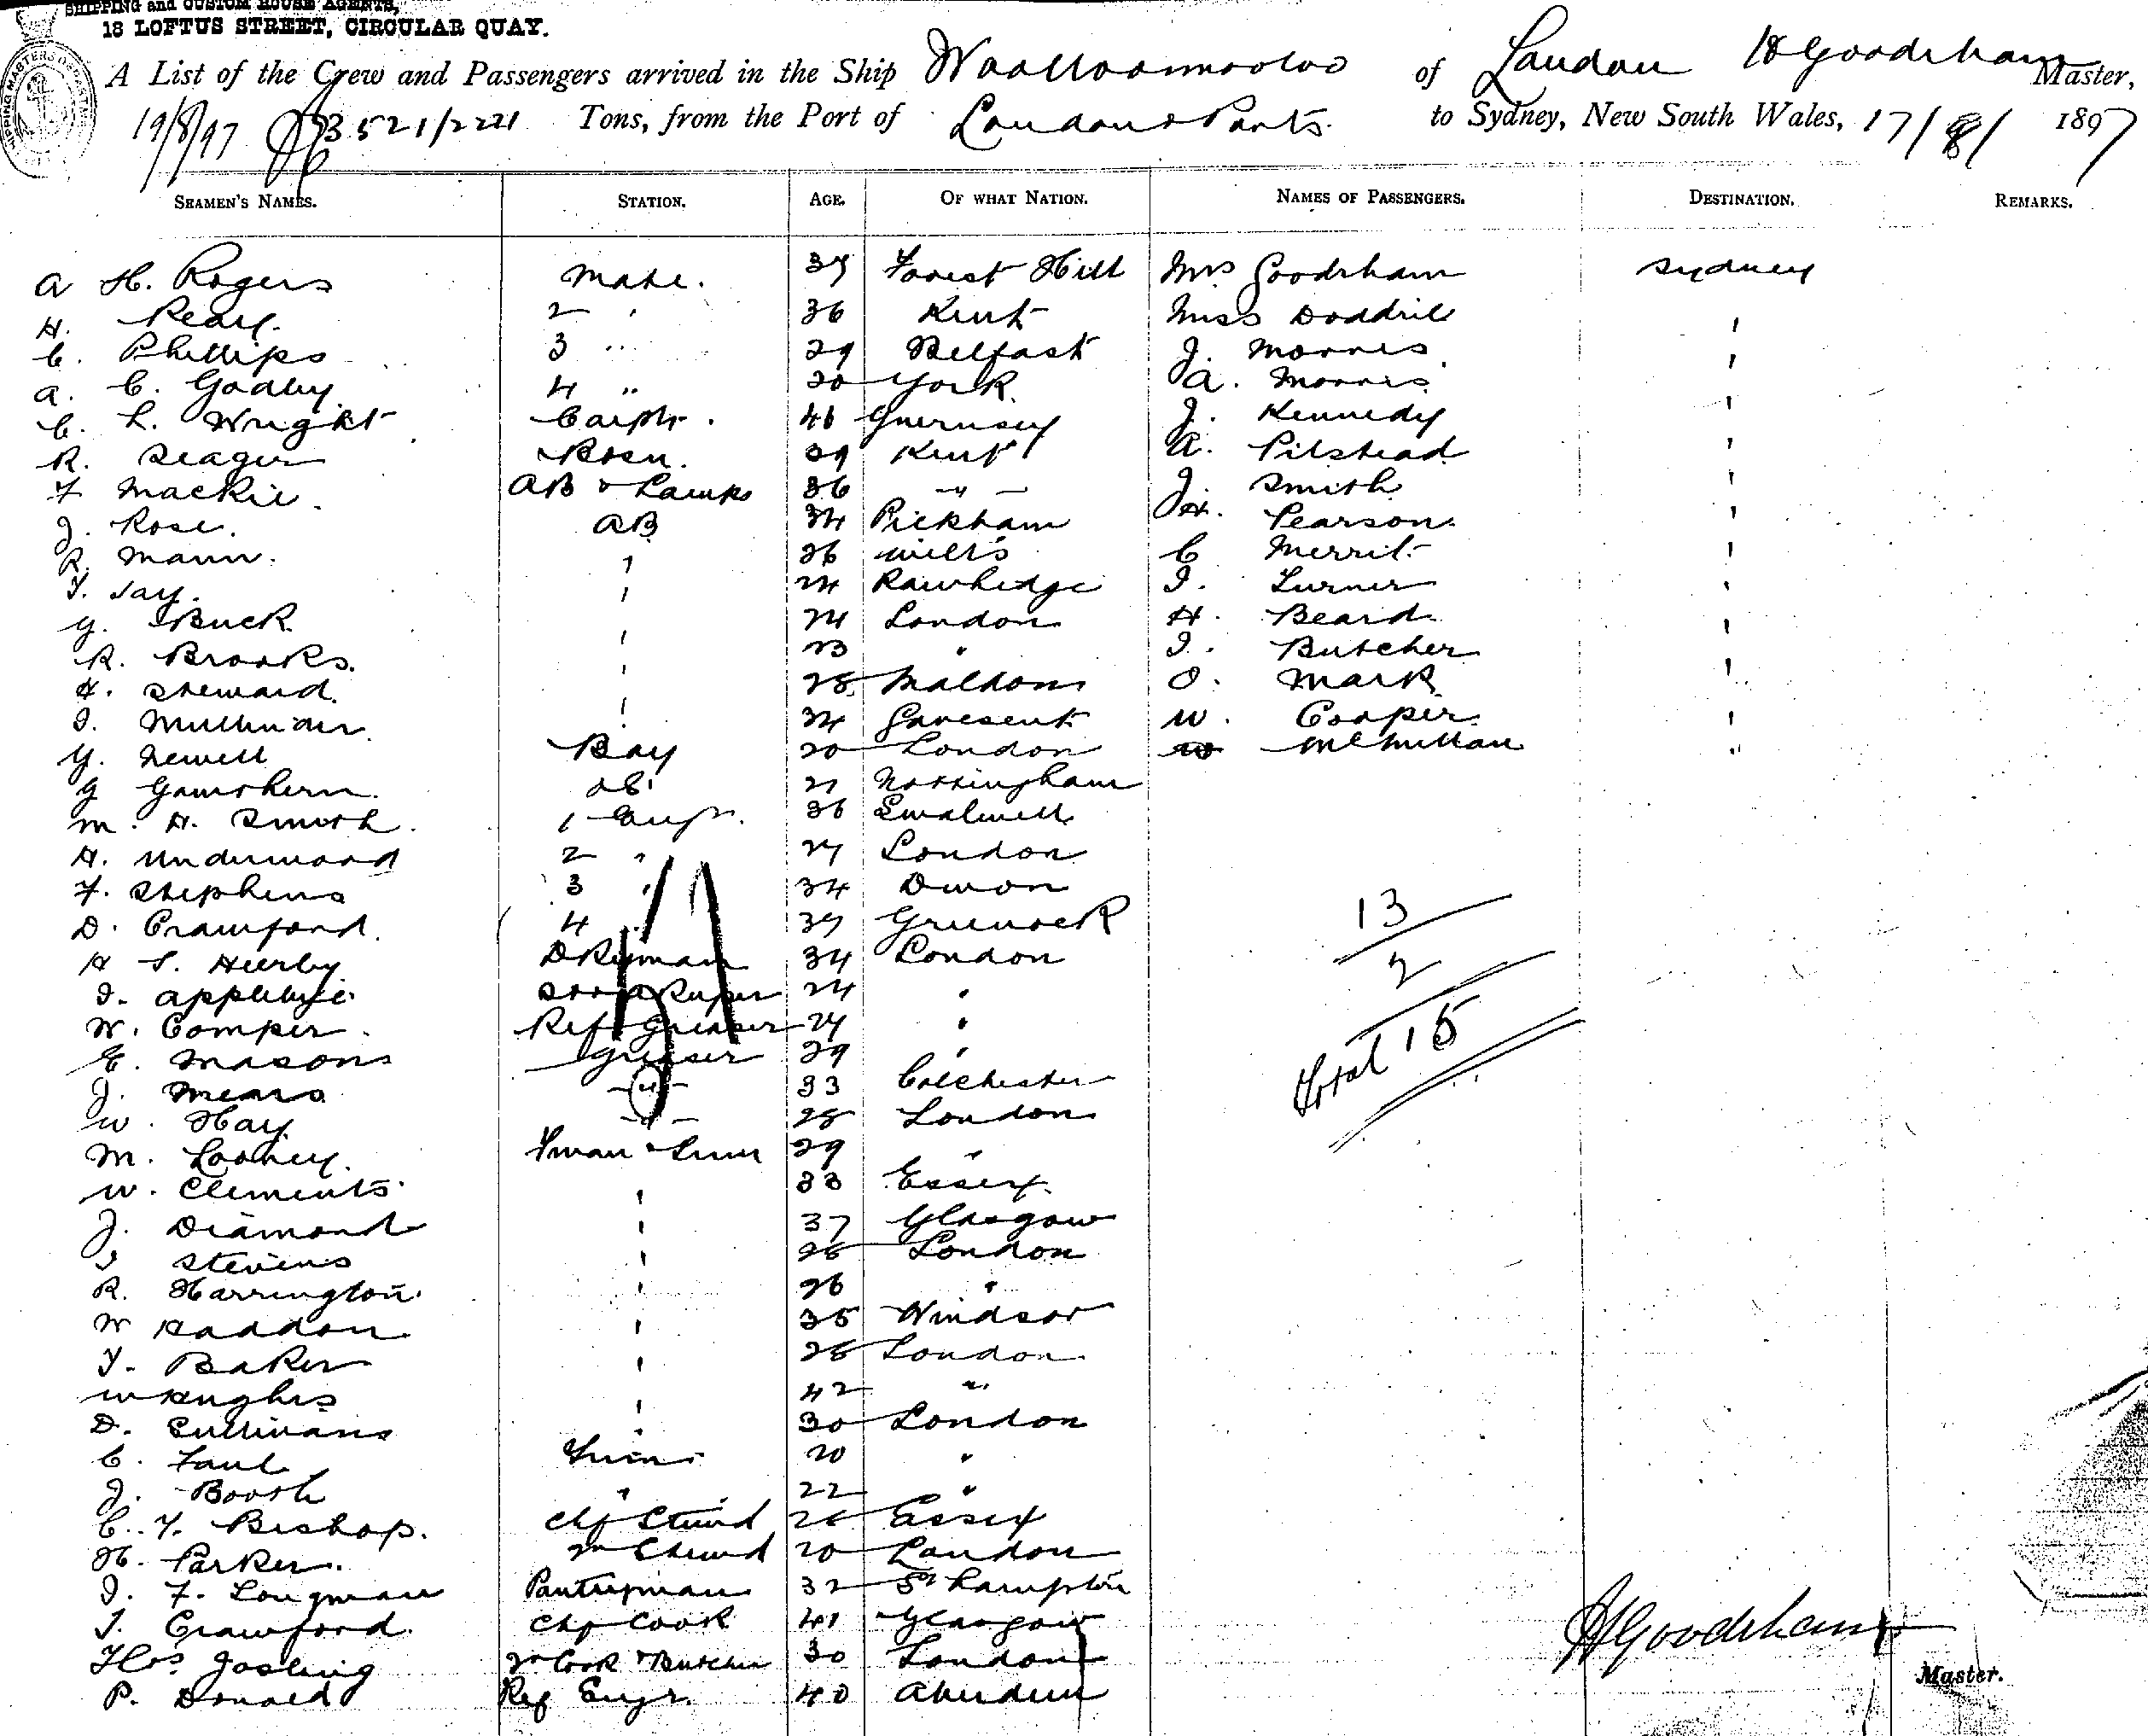 SHIPPING and CUSTOM HOUSE AGENTS,
18 LOFTUS STREET, CIRCULAR QUAY.
A List of the Crew and Passengers arrived in the Ship Woolloomooloo of London H Goodrham Master,
19/8/97 3521/2221 Tons, from the Port of London & Ports. to Sydney, New South Wales, 17/8/ 1897
SEAMEN'S NAMES. STATION. AGE. OF WHAT NATION. NAMES OF PASSENGERS. DESTINATION. REMARKS.
A H. Rogers Mate. 39 Forest Hill Mrs Goodrham Sydney
H. Peary. 2 " 36 Kent Miss Doddril "
C. Phillips 3 " 29 Belfast J. Morris "
A. C. Godby 4 " 20 York. A. Morris "
C. L. Wright Carptr. 46 Guernsey J. Kennedy "
R. Seager Bosn. 39 Kent A. Pilstead "
F Mackie. AB & Lamps 36 " J. Smith "
J. Rose. AB 34 Peckham H. Pearson. "
R. Mann. " 26 Wilts C Merrit. "
T. Jay. " 24 Rawhedge J. Turner "
G. Buck " 24 London H. Beard. "
R. Brooks. " 23 " J. Butcher "
H. Steward. " 28 Maldon O. Mark "
J. " 34 Gravesend W. Cooper. "
G. Newell Boy 20 London W McMillan "
G OS. 21 Nottingham
M. H. Smith. 1 Engr. 36 Swalwell
H. Underwood 2 " 29 London
F. Stephens 3 " 34 Devon
D. Crawford. 4 " 39 Greenock 13
H S. Dkyman 34 London 2
J. Applebye. Storekeeper 24 " total 15
W. Comper. Ref Greaser 24 "
E. Masons Greaser 29 "
J. Mears " 33 Colchester
W. Hay. " 28 London
M. Looney. Fman & Trim 29 "
W. Clements " 33 Essex.
J. Diamond " 37 Glasgow
J Stevens " 28 London
R. Harrington. " 26 "
W Haddon " 35 Windsor
T. Baker " 28 London
W Hughes " 42 "
D. Sullivans " 30 London
C. Faul Trim. 20 "
J. Booth " 22 "
C. F. Bishop. Chf Stewd 26 Essex
H. Parker. 2n Stewd 20 London
J. F. Longman Pantryman 32 Sthampton
T. Crawford. Chf Cook 41 Glasgow
Thos Josling 2n Cook & Butcher 30 London
P. Donald Ref Engr. 40 Aberdeen
H Goodrham
Master.